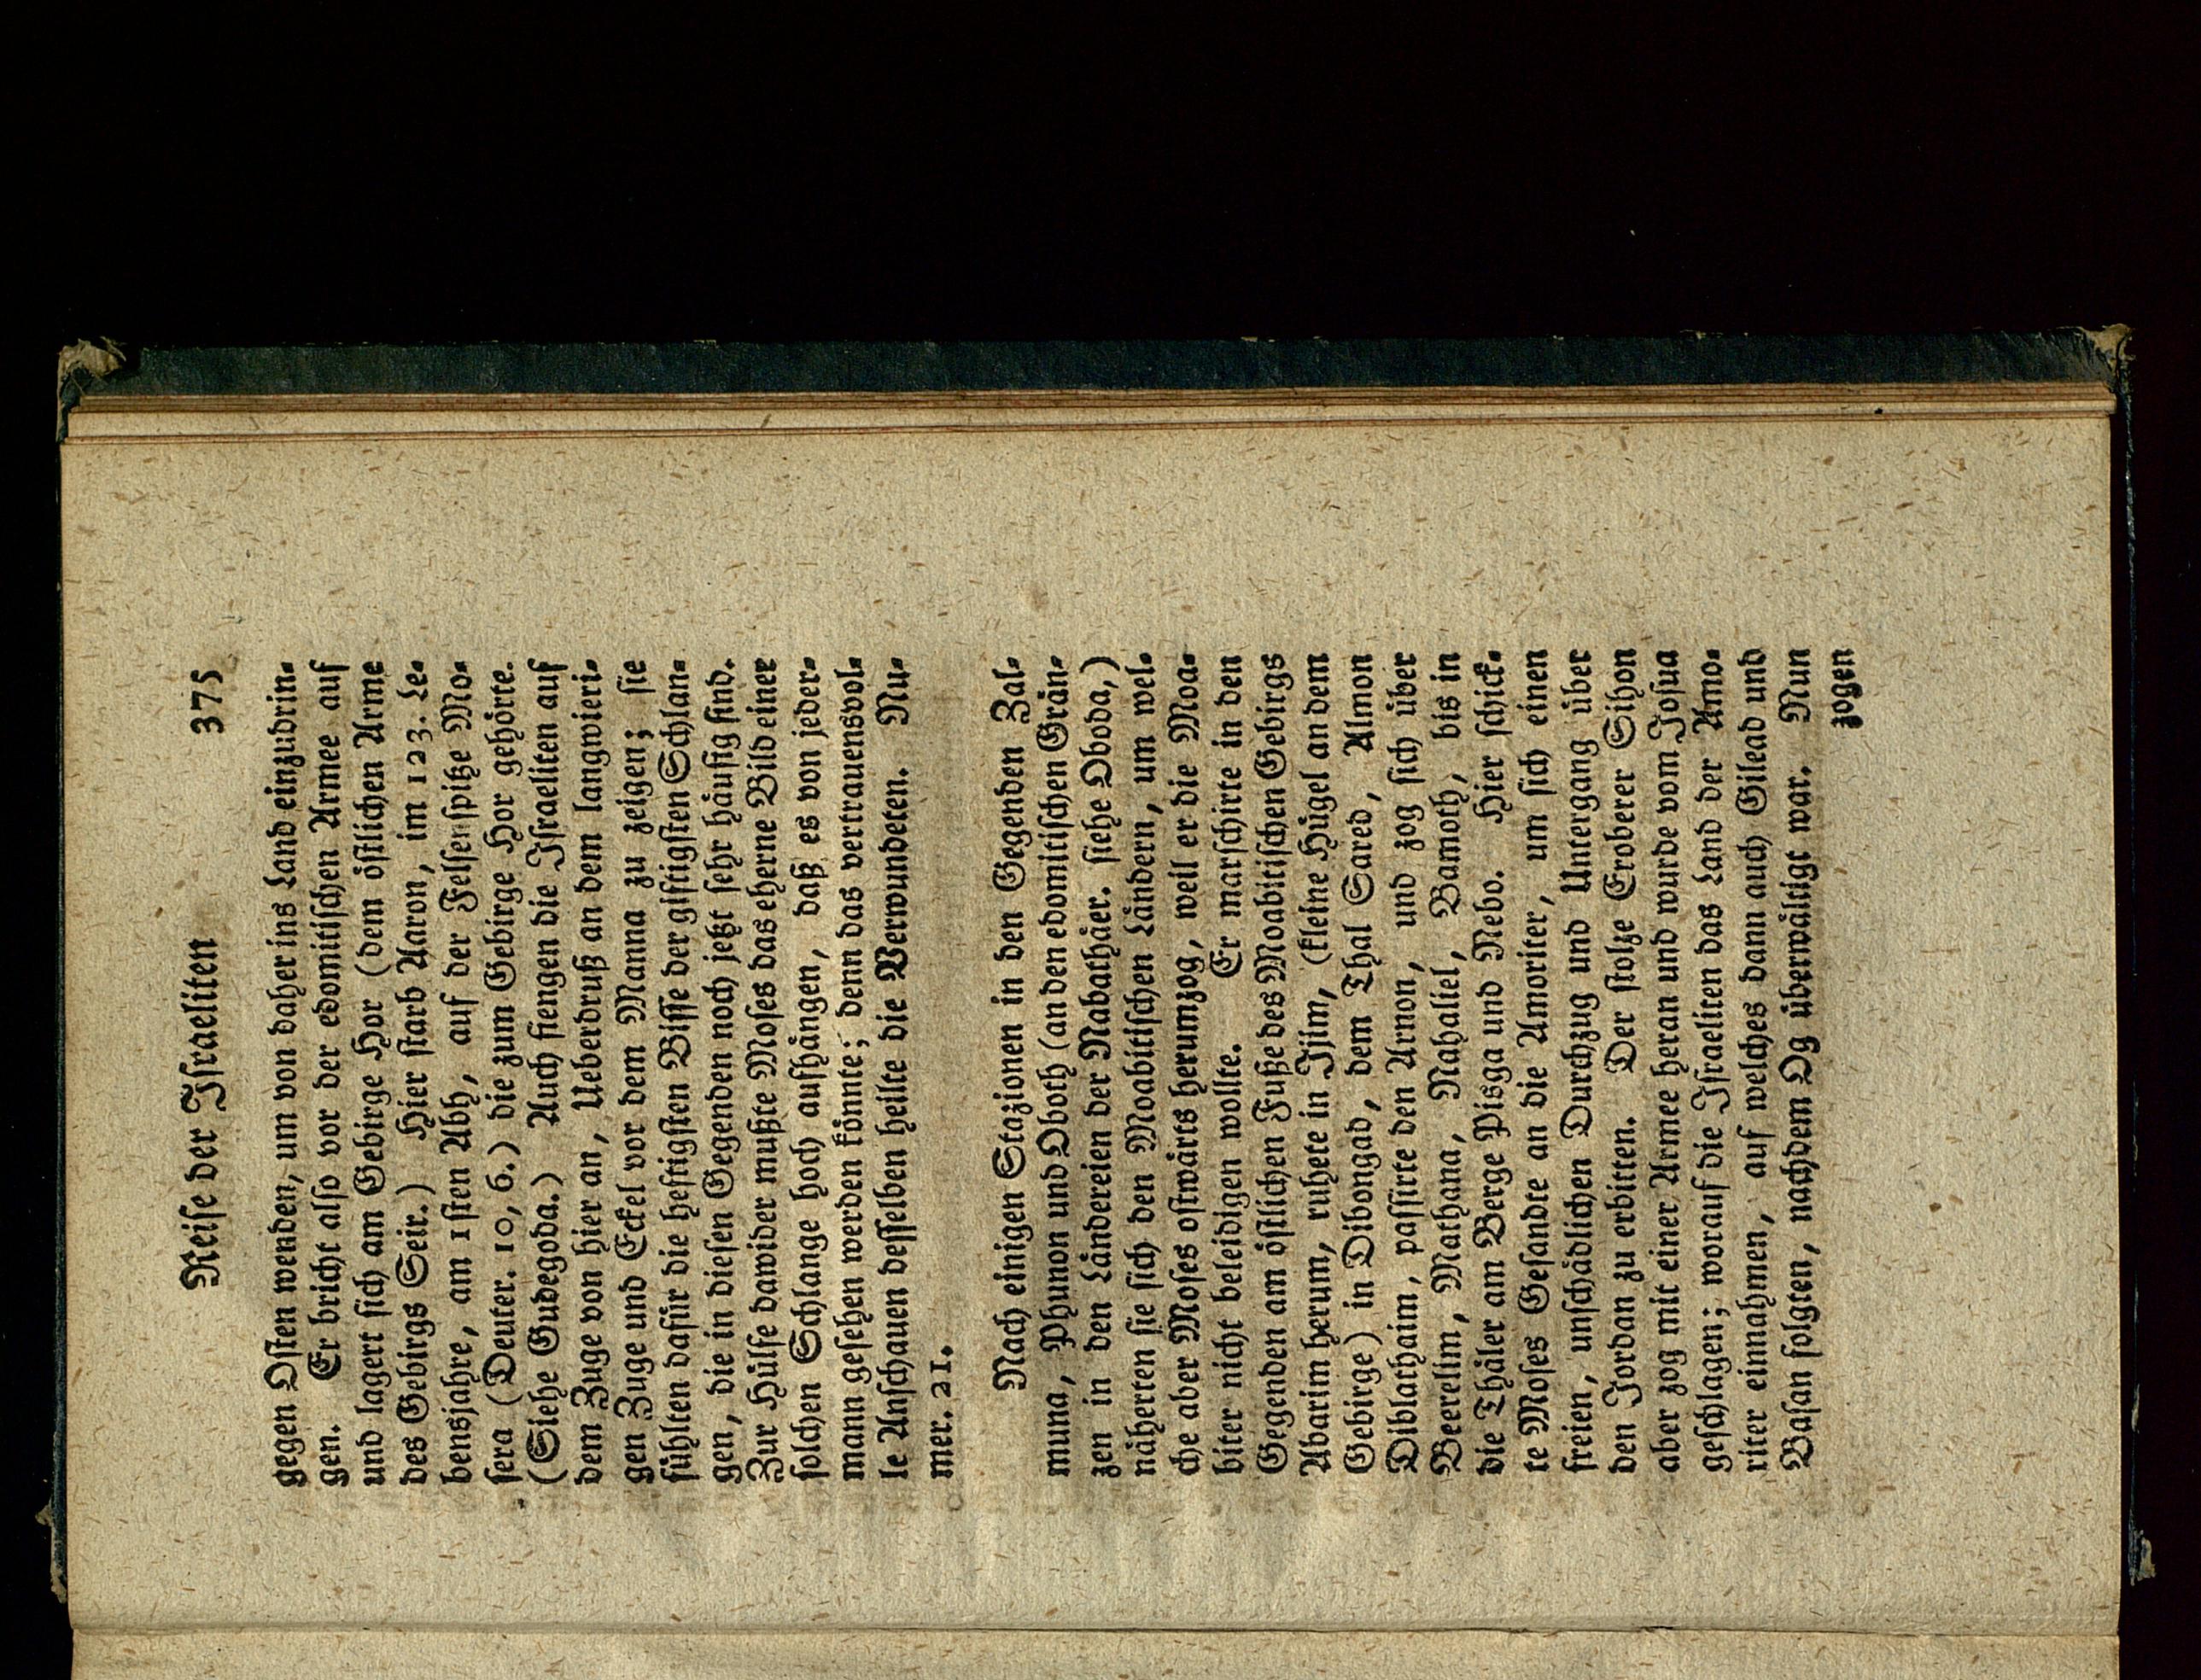 Reise der Israeliten 375
gegen Osten wenden, um von daher ins Land einzudrin-
gen. Er bricht also vor der edomitischen Armee auf
und lagert sich am Gebirge Hor (dem östlichen Arme
des Gebirgs Seir.) Hier starb Aaron, im 123. Le-
bensjahre, am 1sten Abh, auf der Felsenspitze Mo-
sera (Deuter. 10, 6.) die zum Gebirge Hor gehörte.
(Siehe Gudegoda.) Auch fiengen die Israeliten auf
dem Zuge von hier an, Ueberdruß an dem langwieri-
gen Zuge und Eckel vor dem Manna zu zeigen; sie
fühlten dafür die heftigsten Bisse der giftigsten Schlan-
gen, die in diesen Gegenden noch jetzt sehr häufig sind.
Zur Hülfe dawider mußte Moses das eherne Bild einer
solchen Schlange hoch aufhängen, daß es von jeder-
mann gesehen werden könnte; denn das vertrauensvol-
le Anschauen desselben heilte die Verwundeten. Nu-
mer. 21.
Nach einigen Stazionen in den Gegenden Zal-
muna, Phunon und Oboth (an den edomitischen Grän-
zen in den Ländereien der Nabathäer. siehe Oboda,)
näherten sie sich den Moabitischen Ländern, um wel-
che aber Moses ostwärts herumzog, weil er die Moa-
biter nicht beleidigen wollte. Er marschirte in den
Gegenden am östlichen Fuße des Moabitischen Gebirgs
Abarim herum, ruhete in Jjim, (kleine Hügel an dem
Gebirge) in Dibongad, dem Thal Sared, Almon
Diblathaim, passirte den Arnon, und zog sich über
Beerelim, Mathana, Nahaliel, Bamoth, bis in
die Thäler am Berge Pisga und Nebo. Hier schick-
te Moses Gesandte an die Amoriter, um sich einen
freien, unschädlichen Durchzug und Untergang über
den Jordan zu erbitten. Der stolze Eroberer Sihon
aber zog mit einer Armee heran und wurde vom Josua
geschlagen; worauf die Israeliten das Land der Amo-
riter einnahmen, auf welches dann auch Gilead und
Basan folgten, nachdem Og überwältigt war. Nun
zogen